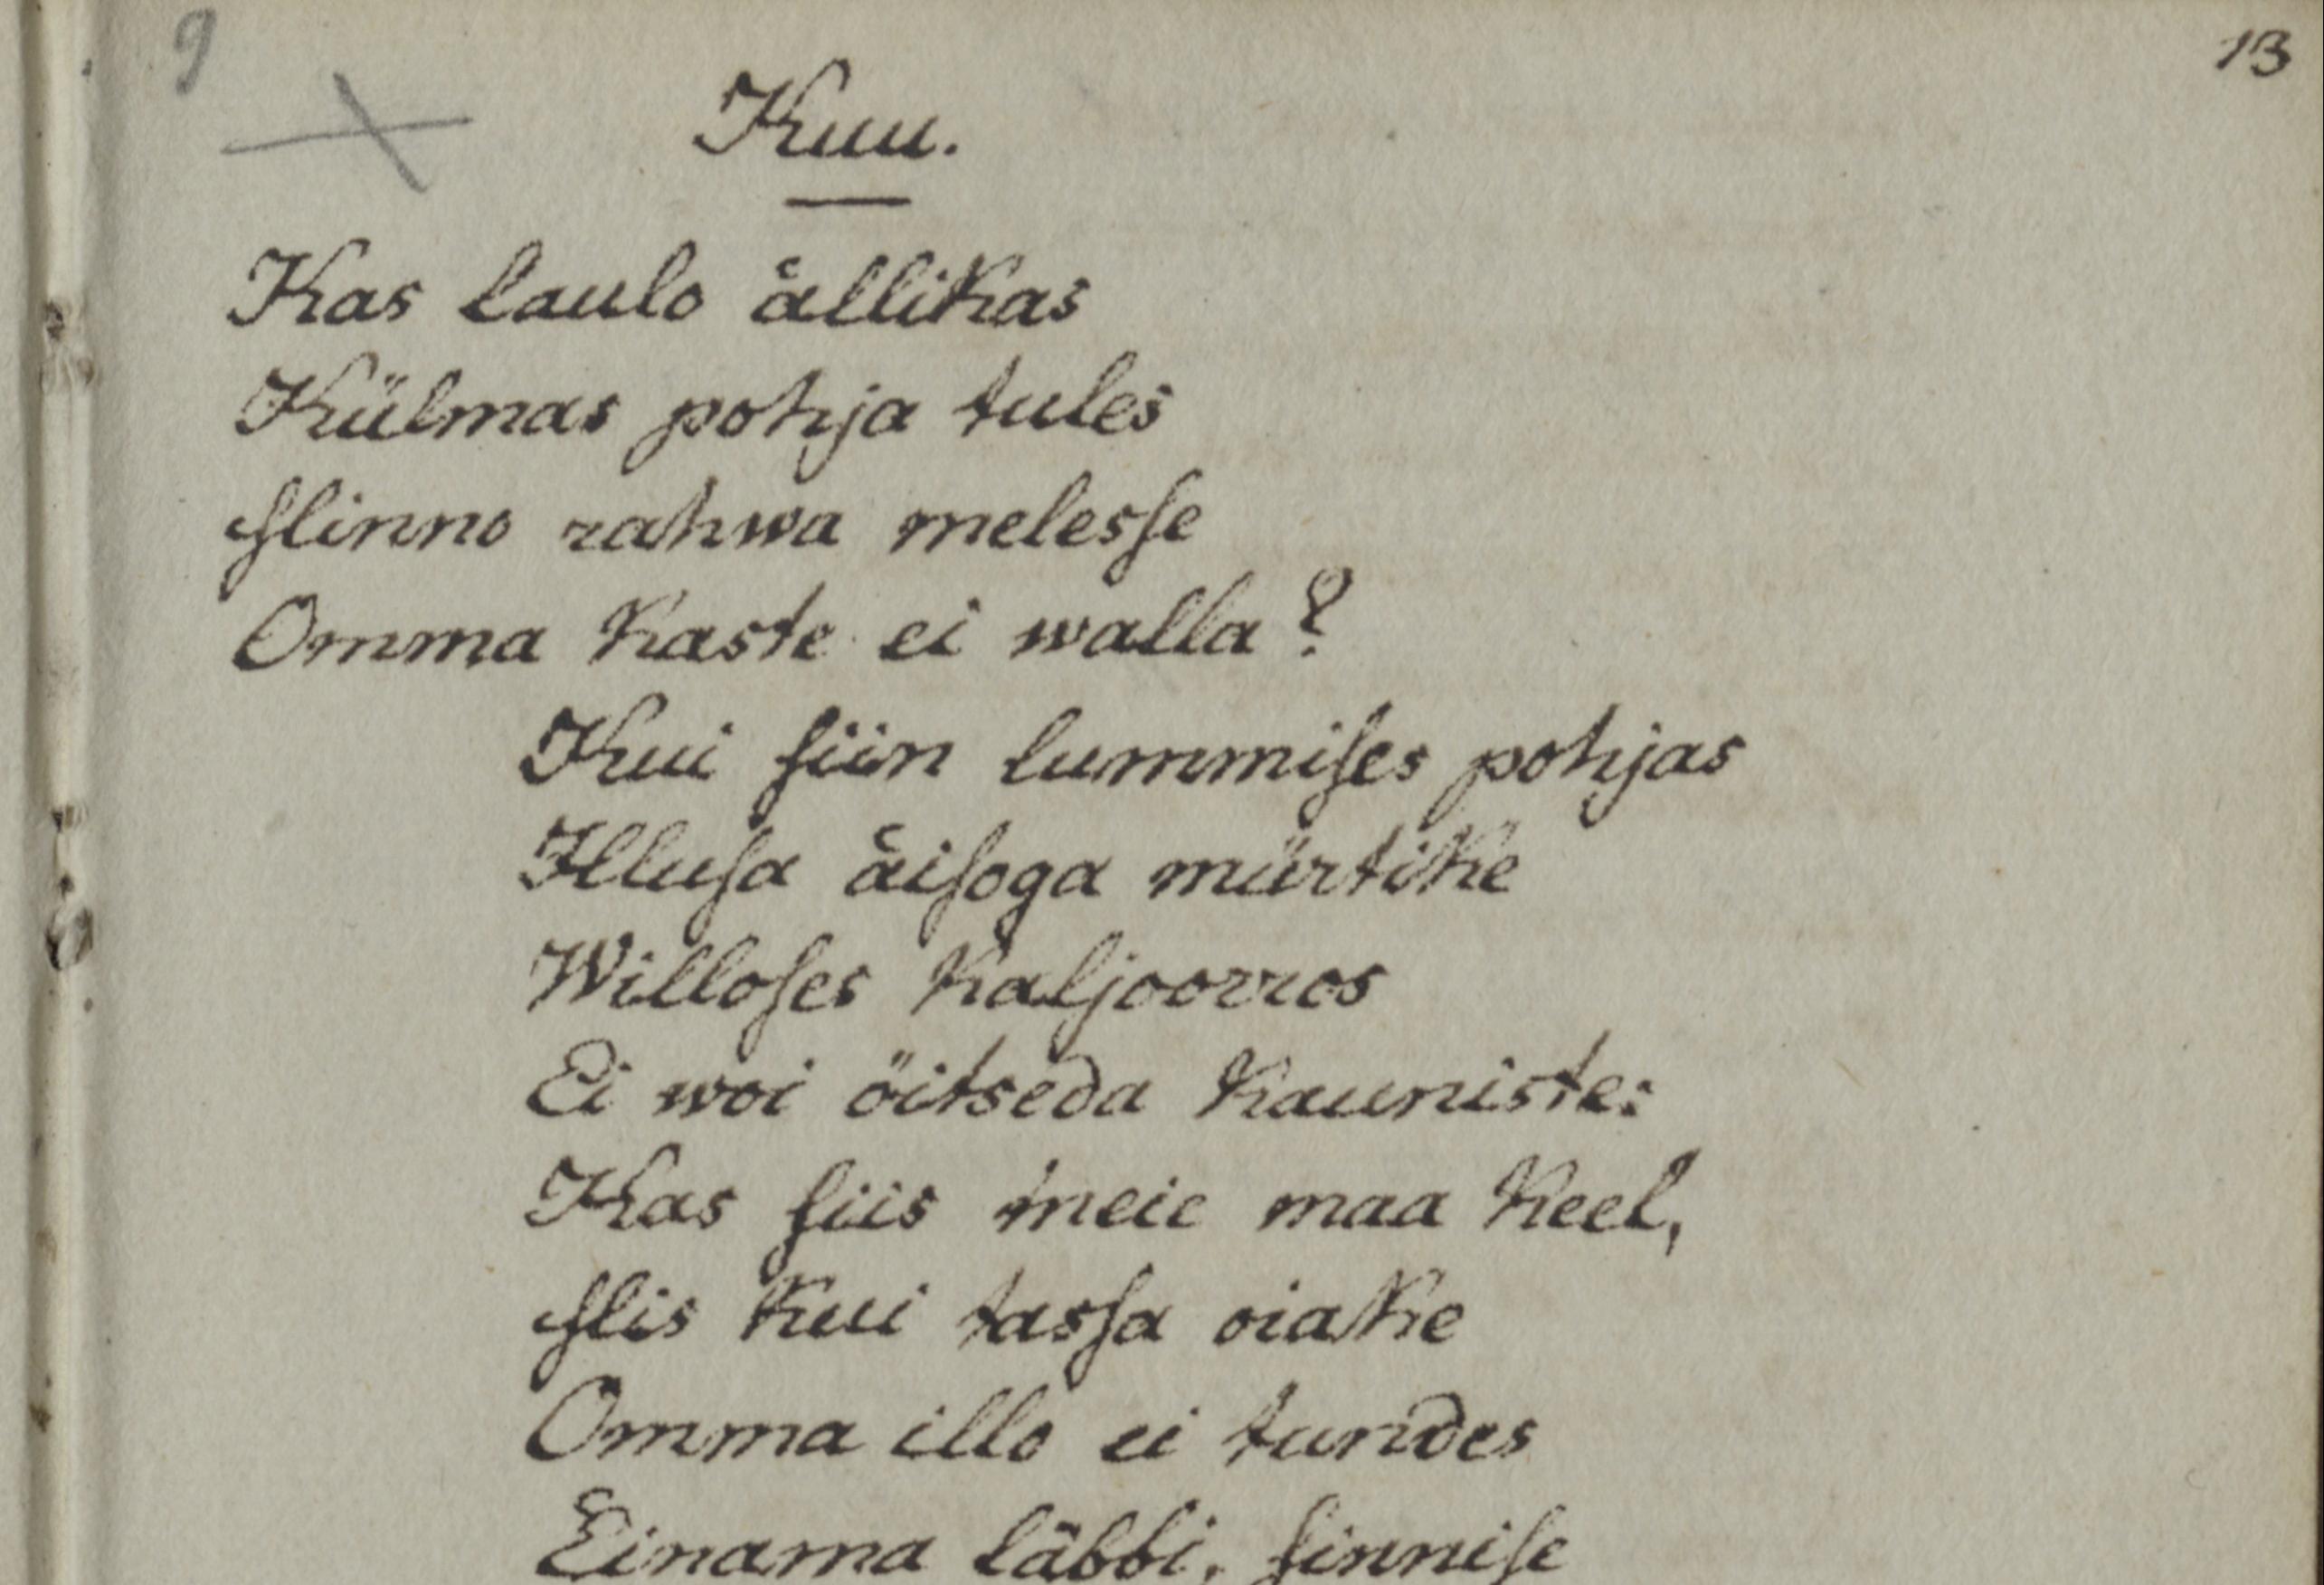 9
13
Kuu.
Kas laulo ällikas
Külmas pohja tules
Minno rahwa melesſe
Omma kaste ei walla?
Kui ſiin lummiſes pohjas
Illuſa äiſoga mürtike
Willoſes kaljoorros
Ei woi öitseda kauniste:
Kas ſiis meie maa keel,
Mis kui tasſa oiake
Omma illo ei tundes
Einama läbbi, ſinniſe